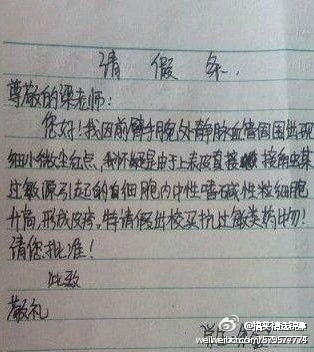 请 假 条.
尊敬的梁老师:
您好!我因前臂手腕处外静脉血管周围出现
细小微尘红点,我怀疑是由于上表皮直接接触某
过敏源引起的白细胞内中性嗜碱性粒细胞
升高,形成皮疹,特请假出校买抗过敏类药物!
请您批准!
此致
敬礼
@搞笑精选锦集